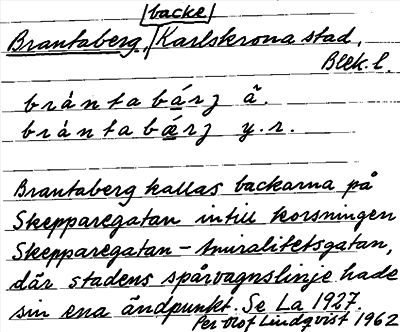 backe
Brantaberg, Karlskrona stad,
Blek. l.
bràntabárj ä.
bràntabǽrj y.r.
Brantaberg kallas backarna på
Skepparegatan intill korsningen
Skepparegatan – Amiralitetsgatan,
där stadens spårvagnslinje hade
sin ena ändpunkt. Se La 1927.
Per Olof Lindqvist 1962